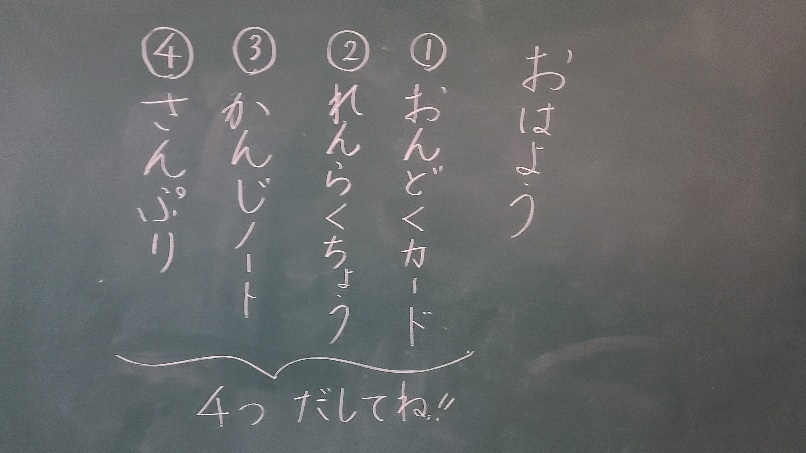 おはよう
①おんどくカード
②れんらくちょう
③かんじノート
④さんぷり
4つ だしてね!!